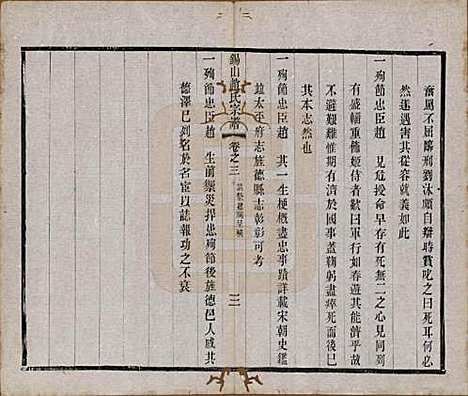 奮罵不屈臨刑劉沐顧自辯時賞叱之曰死耳何必
然遂遇害其從容就義如此
一殉節忠臣趙　危難授命早存有死無二之心見同列
有盛輜重飾姬侍者歎曰軍行如春遊其能濟乎故
不避艱難惟期有濟於國事蓋鞠躬盡瘁死而後已
其本志然也
一殉節忠臣趙　其一生梗概盡忠事蹟詳載宋朝史鑑
錫山趙氏宗譜
卷之三
三
暨太平府志旌德縣志彰彰可考
一殉節忠臣趙　生前禦災捍患殉節後旌德邑人咸其
德澤已列名於名宦以誌報功之不衰